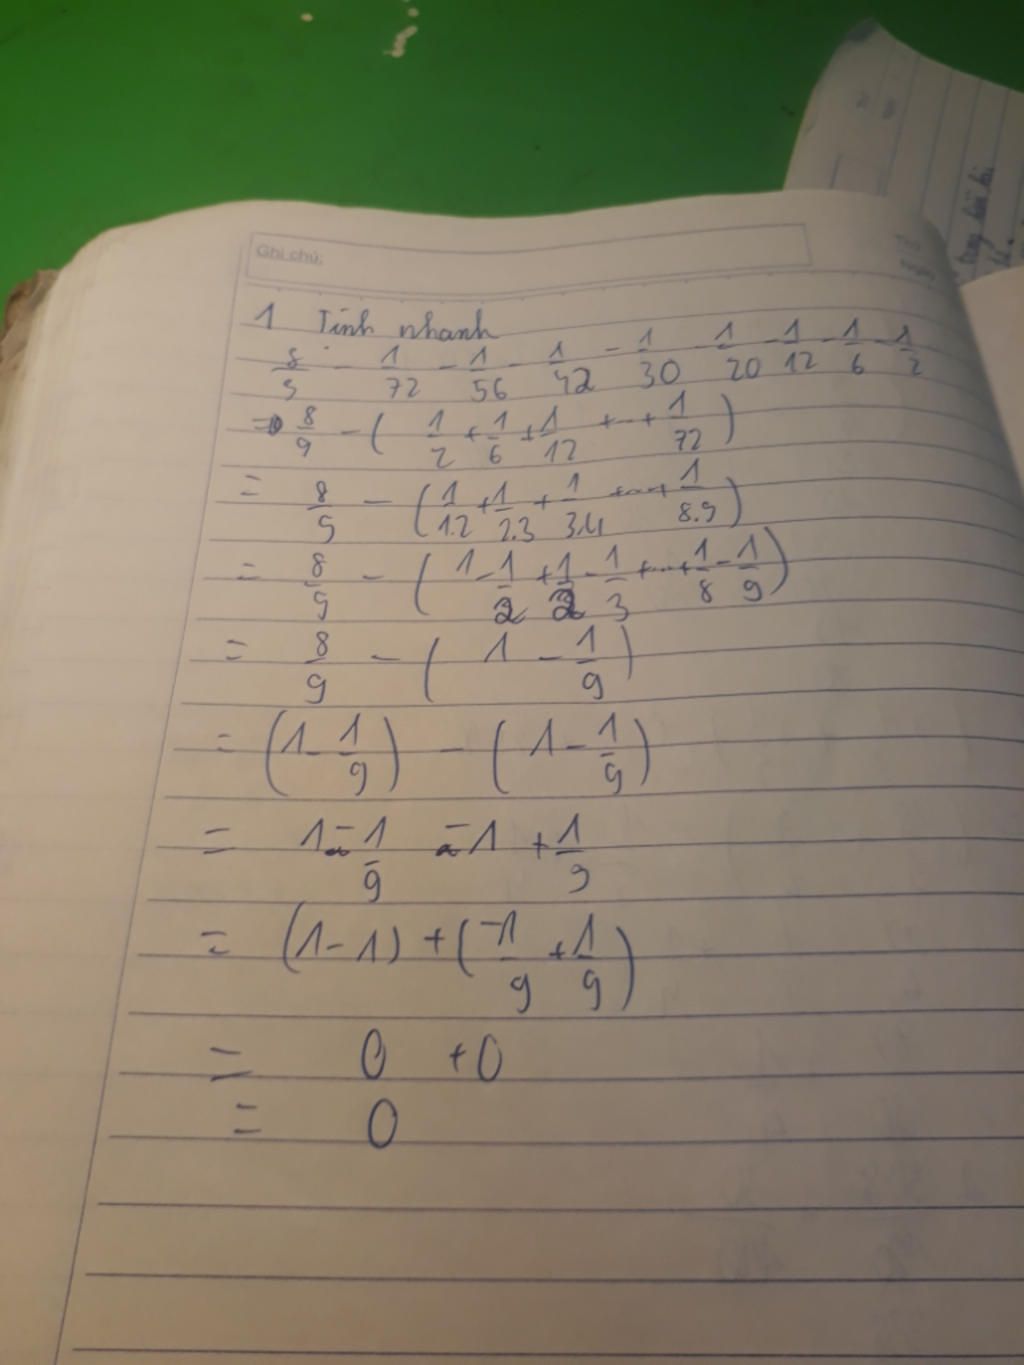 Ghi chú:
Thứ
Ngày
1 Tính nhanh
8/9 - 1/72 - 1/56 - 1/42 - 1/30 - 1/20 - 1/12 - 1/6 - 1/2
= 8/9 - ( 1/2 + 1/6 + 1/12 + ... + 1/72 )
= 8/9 - ( 1/1.2 + 1/2.3 + 1/3.4 + ... + 1/8.9 )
= 8/9 - ( 1 - 1/2 + 1/2 - 1/3 + ... + 1/8 - 1/9 )
= 8/9 - ( 1 - 1/9 )
= ( 1 - 1/9 ) - ( 1 - 1/9 )
= 1 - 1/9 - 1 + 1/9
= ( 1 - 1 ) + ( -1/9 + 1/9 )
= 0 + 0
= 0